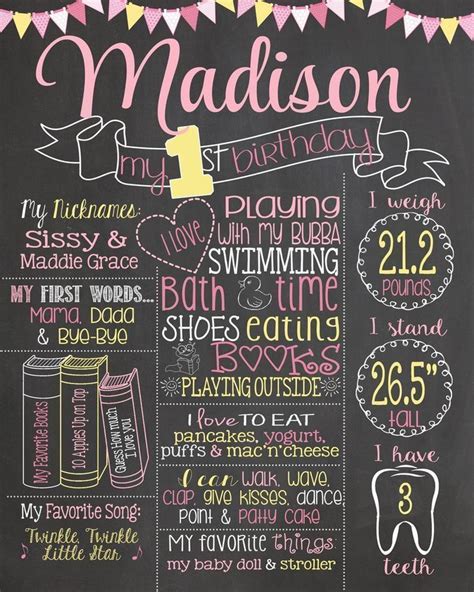 Madison
my 1st birthday
My Nicknames:
Sissy &
Maddie Grace
MY FIRST WORDS...
Mama, Dada
& Bye-Bye
My Favorite Books
10 Apples Up on Top
Guess How much
I love you
My Favorite Song:
Twinkle, Twinkle
Little Star
I LOVE
PLAYING
WITH MY BUBBA
SWIMMING
Bath time
SHOES eating
BOOKS
PLAYING OUTSIDE
I love TO EAT
pancakes, yogurt,
puffs & mac'n'cheese
I can WALK, WAVE,
CLAP, GIVE KISSES, DANCE
POINT & PATTY CAKE
MY FAVORITE things:
my baby doll & stroller
I weigh
21.2
POUNDS
I stand
26.5"
tall
I have
3
teeth